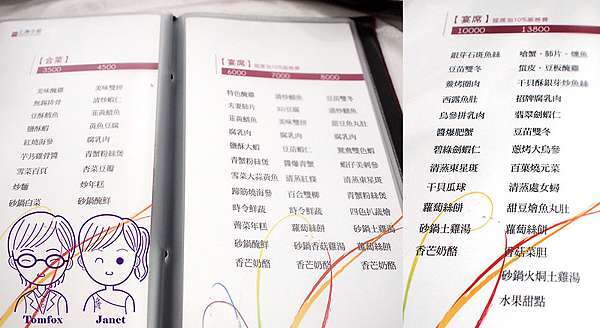 【合菜】
3500 4500
美味醃雞 美味雙拼
無錫排骨 清炒蝦仁
豆酥鱈魚 韮黃鱔魚
鹽酥蝦 黃魚豆腐
紅燒海參 腐乳肉
芋艿雞骨醬 青蟹粉絲煲
雪菜百頁 杏菜豆瓣
炒麵 炒年糕
砂鍋白菜 砂鍋醃鮮
Tomfox Janet
【宴席】 筵席加10%服務費
6000 7000 8000
特色醃雞 清炒鱔魚 豆苗雙冬
夫妻肺片 清炒鱔魚
韮黃鱔魚 甜豆魚丸肚
腐乳肉 腐乳肉 腐乳肉
鹽酥大蝦 豆苗蝦仁 鴛鴦雙色蝦
青蟹粉絲煲 醬爆青蟹 蝦子美刺參
雪菜大蒜黃魚 清蒸紅條 清蒸東星斑
蹄筋燒海參 百合雙柳 青蟹粉絲煲
時令鮮蔬 時令鮮蔬 四色扒蔬燴
薺菜年糕 蘿蔔絲餅 砂鍋土雞湯
砂鍋醃鮮 砂鍋香菇雞湯 蘿蔔絲餅
香芒奶酪 香芒奶酪 香芒奶酪
【宴席】 筵席加10%服務費
10000 13800
銀芽石斑魚絲 嗆蟹、肺片、燻魚
豆苗雙冬 蛋皮、豆板醃雞
蕪烤圈肉 干貝酥銀芽炒魚絲
西露魚肚 招牌腐乳肉
烏參拼乳肉 翡翠劍蝦仁
醬爆肥蟹 豆苗雙冬
碧綠劍蝦仁 蔥烤大烏參
清蒸東星斑 百葉燒元菜
干貝瓜球 清蒸處女蟳
蘿蔔絲餅 甜豆燴魚丸肚
砂鍋土雞湯 蘿蔔絲餅
香芒奶酪 香菇菜胆
砂鍋火焖土雞湯
水果甜點